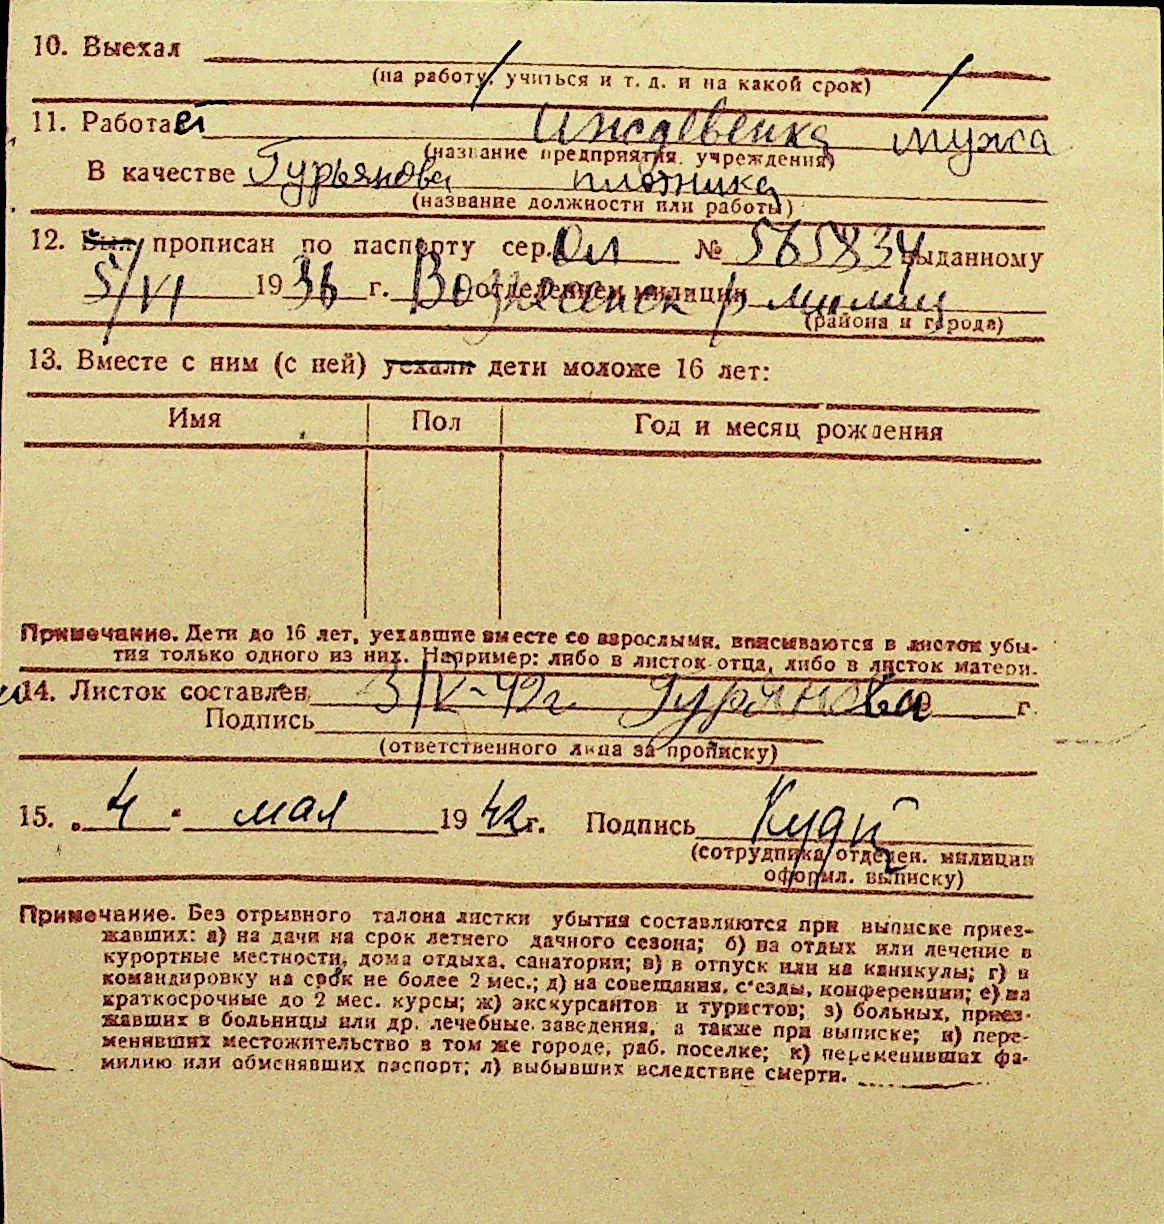 10. Выехал
(на работу, учиться и т. д. и на какой срок)
11. Работает Иждевенка мужа
(название предприятия, учреждения)
В качестве Гурьянова плотника
(название должности или работы)
12. Был прописан по паспорту сер. № 565834 выданному
5/VI 1936 г. Вознесенск р милиц отделением милиции
(района и города)
13. Вместе с ним (с ней) уехали дети моложе 16 лет:
Имя Пол Год и месяц рождения
Примечание. Дети до 16 лет, уехавшие вместе со взрослыми, вписываются в листок убы-
тия только одного из них. Например: либо в листок отца, либо в листок матери.
14. Листок составлен 3/V-42г. Гурянова г.
Подпись
(ответственного лица за прописку)
15. „4" мая 1942 г. Подпись
(сотрудника отделен. милиции
оформл. выписку)
Примечание. Без отрывного талона листки убытия составляются при выписке приез-
жавших: а) на дачи на срок летнего дачного сезона; б) на отдых или лечение в
курортные местности, дома отдыха, санатории; в) в отпуск или на каникулы; г) в
командировку на срок не более 2 мес.; д) на совещания, с'езды, конференции; е) на
краткосрочные до 2 мес. курсы; ж) экскурсантов и туристов; з) больных, приез-
жавших в больницы или др. лечебные заведения, а также при выписке; и) пере-
менивших местожительство в том же городе, раб. поселке; к) переменивших фа-
милию или обменявших паспорт; л) выбывших вследствие смерти.